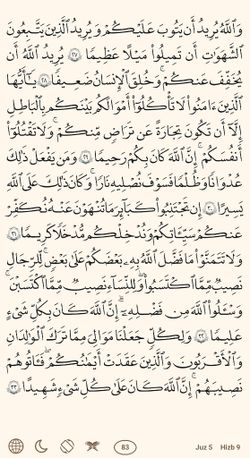 وَٱللَّهُ يُرِيدُ أَن يَتُوبَ عَلَيْكُمْ وَيُرِيدُ ٱلَّذِينَ يَتَّبِعُونَ
ٱلشَّهَوَٰتِ أَن تَمِيلُوا۟ مَيْلًا عَظِيمًا ٢٧ يُرِيدُ ٱللَّهُ أَن
يُخَفِّفَ عَنكُمْ ۚ وَخُلِقَ ٱلْإِنسَٰنُ ضَعِيفًا ٢٨ يَٰٓأَيُّهَا
ٱلَّذِينَ ءَامَنُوا۟ لَا تَأْكُلُوٓا۟ أَمْوَٰلَكُم بَيْنَكُم بِٱلْبَٰطِلِ
إِلَّآ أَن تَكُونَ تِجَٰرَةً عَن تَرَاضٍ مِّنكُمْ ۚ وَلَا تَقْتُلُوٓا۟
أَنفُسَكُمْ ۚ إِنَّ ٱللَّهَ كَانَ بِكُمْ رَحِيمًا ٢٩ وَمَن يَفْعَلْ ذَٰلِكَ
عُدْوَٰنًا وَظُلْمًا فَسَوْفَ نُصْلِيهِ نَارًا ۚ وَكَانَ ذَٰلِكَ عَلَى ٱللَّهِ
يَسِيرًا ٣٠ إِن تَجْتَنِبُوا۟ كَبَآئِرَ مَا تُنْهَوْنَ عَنْهُ نُكَفِّرْ
عَنكُمْ سَيِّـَٔاتِكُمْ وَنُدْخِلْكُم مُّدْخَلًا كَرِيمًا ٣١
وَلَا تَتَمَنَّوْا۟ مَا فَضَّلَ ٱللَّهُ بِهِۦ بَعْضَكُمْ عَلَىٰ بَعْضٍ ۚ لِّلرِّجَالِ
نَصِيبٌ مِّمَّا ٱكْتَسَبُوا۟ ۖ وَلِلنِّسَآءِ نَصِيبٌ مِّمَّا ٱكْتَسَبْنَ ۚ
وَسْـَٔلُوا۟ ٱللَّهَ مِن فَضْلِهِۦٓ ۗ إِنَّ ٱللَّهَ كَانَ بِكُلِّ شَىْءٍ
عَلِيمًا ٣٢ وَلِكُلٍّ جَعَلْنَا مَوَٰلِىَ مِمَّا تَرَكَ ٱلْوَٰلِدَانِ
وَٱلْأَقْرَبُونَ ۚ وَٱلَّذِينَ عَقَدَتْ أَيْمَٰنُكُمْ فَـَٔاتُوهُمْ
نَصِيبَهُمْ ۚ إِنَّ ٱللَّهَ كَانَ عَلَىٰ كُلِّ شَىْءٍ شَهِيدًا ٣٣
83 Juz 5 Hizb 9